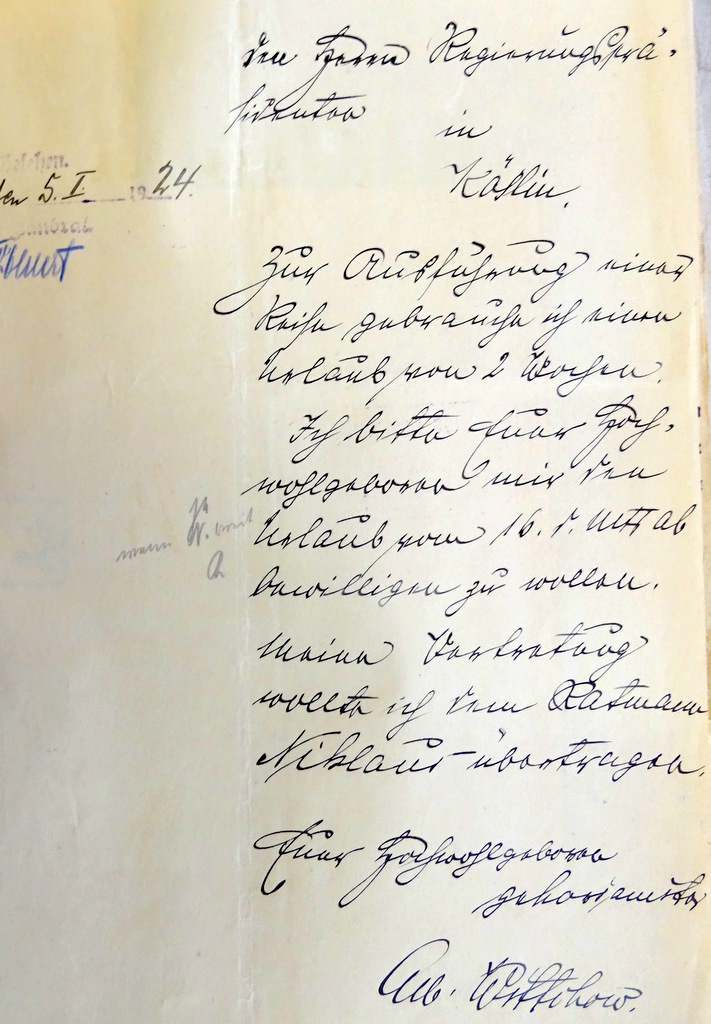 den Herrn Regierungsprä-
sidenten
in
Köslin.
Gesehen.
den 5. I. 1924.
Landrat
Zur Ausführung einer
Reise gebrauche ich einen
Urlaub von 2 Wochen.
Ich bitte Euer Hoch-
wohlgeboren mir den
Urlaub vom 16. d. Mts ab
bewilligen zu wollen.
Meine Vertretung
wollte ich dem Ratmann
Niklaus übertragen.
Euer Hochwohlgeboren
gehorsamster